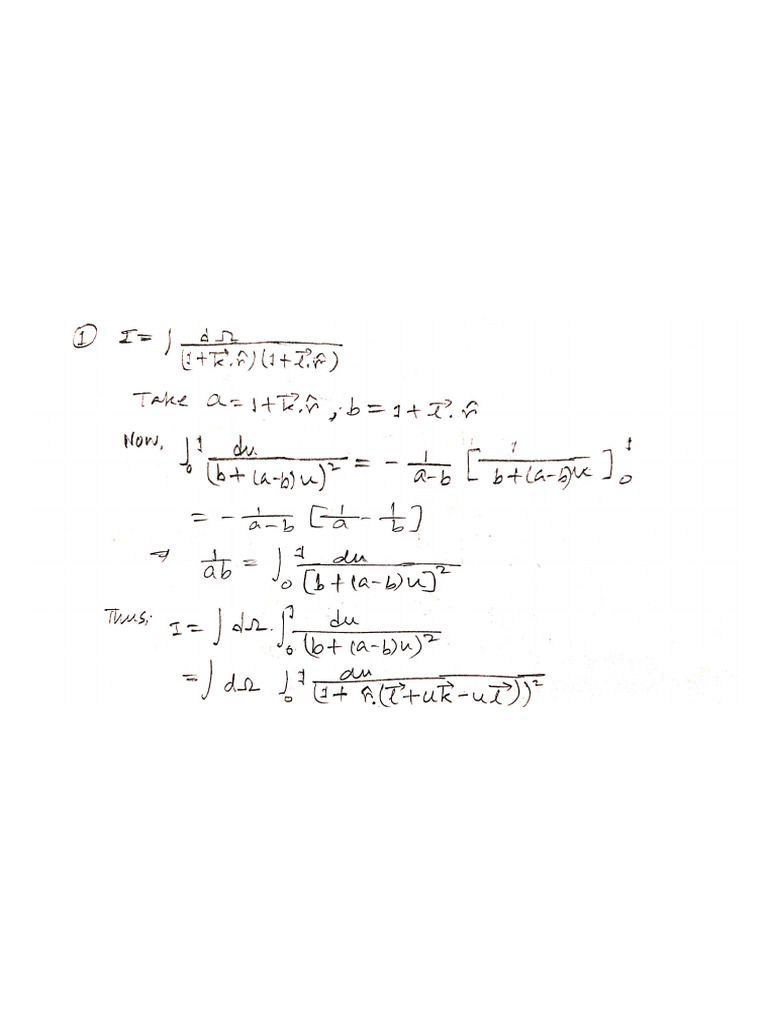 ① I = ∫ dΩ / (1+k⃗.r̂)(1+l⃗.r̂)
Take a = 1+k⃗.r̂, b = 1+l⃗.r̂
Now, ∫₀¹ du / (b+(a-b)u)² = - 1/(a-b) [ 1 / (b+(a-b)u) ]₀¹
= - 1/(a-b) [ 1/a - 1/b ]
⇒ 1/ab = ∫₀¹ du / [b+(a-b)u]²
Thus; I = ∫ dΩ. ∫₀¹ du / (b+(a-b)u)²
= ∫ dΩ ∫₀¹ du / (1+ r̂.(l⃗+uk⃗-ul⃗))²